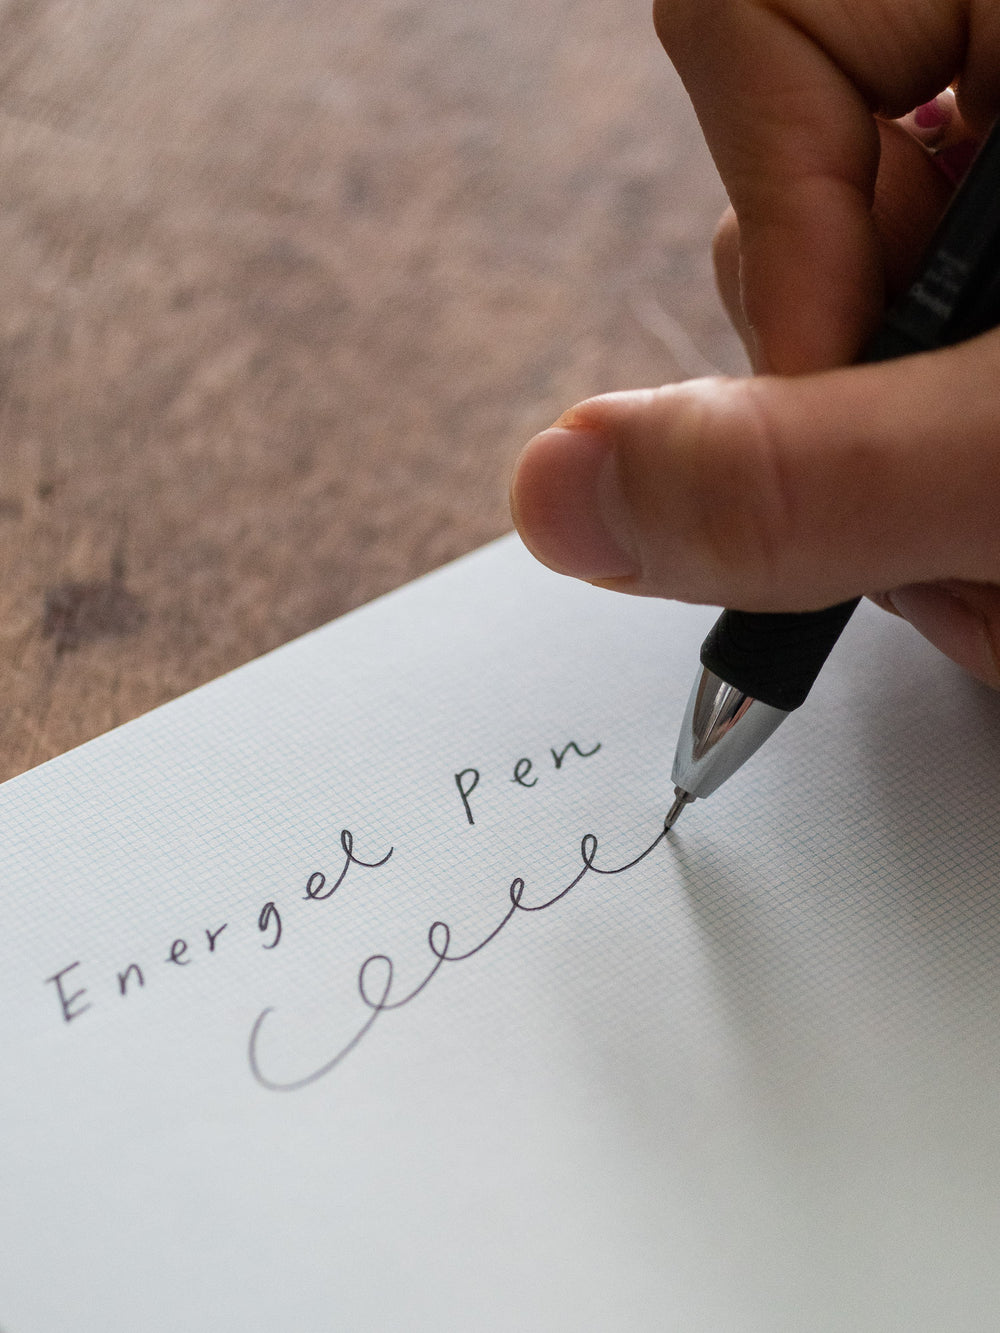 Energel Pen